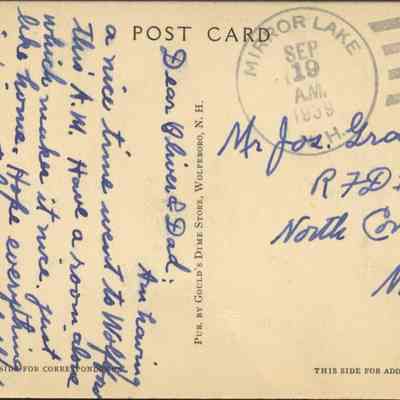 POST CARD
MIRROR LAKE
SEP
19
A.M.
1939
N.H.
Dear Oliver & Dad:
Am having
a nice time went to Wolfboro
This A.M. Have a room alone
which makes it nice. Just
like home. Hope everything
PUB. BY GOULD'S DIME STORE, WOLFEBORO, N. H.
Mr Jos. Gra
R F D
North Con
SIDE FOR CORRESPONDENCE
THIS SIDE FOR ADD